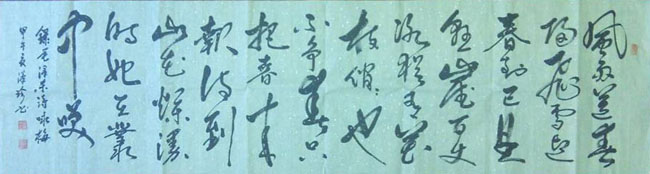 風雨送春
歸飛雪迎
春到已是
懸崖百丈
冰猶有花
枝俏々也
不争春只
把春来
報待到
山花爛漫
時她在叢
中笑
錄毛泽东诗咏梅
甲午夏